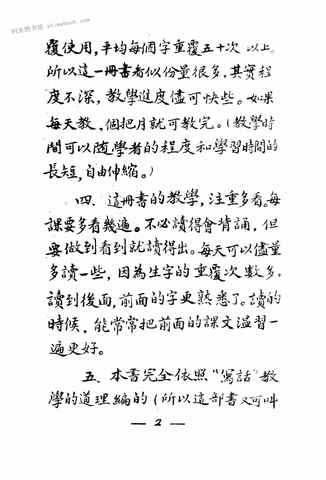 覆使用，平均每個字重覆五十次以上。
所以這一冊書看似份量很多，其實程
度不深，教學進度儘可快些。如果
每天教，個把月就可教完。（教學時
間可以随學者的程度和學習時間的
長短，自由伸縮。）
四、這冊書的教學，注重多看。每
課要多看幾遍。不必讀得會背誦，但
要做到看到就讀得出。每天可以儘量
多讀一些，因為生字的重覆次數多。
讀到後面，前面的字更熟悉了。讀的
時候，能常常把前面的課文溫習一
遍更好。
五、本書完全依照“寫話”教
學的道理編的（所以這部書又可叫
— 2 —